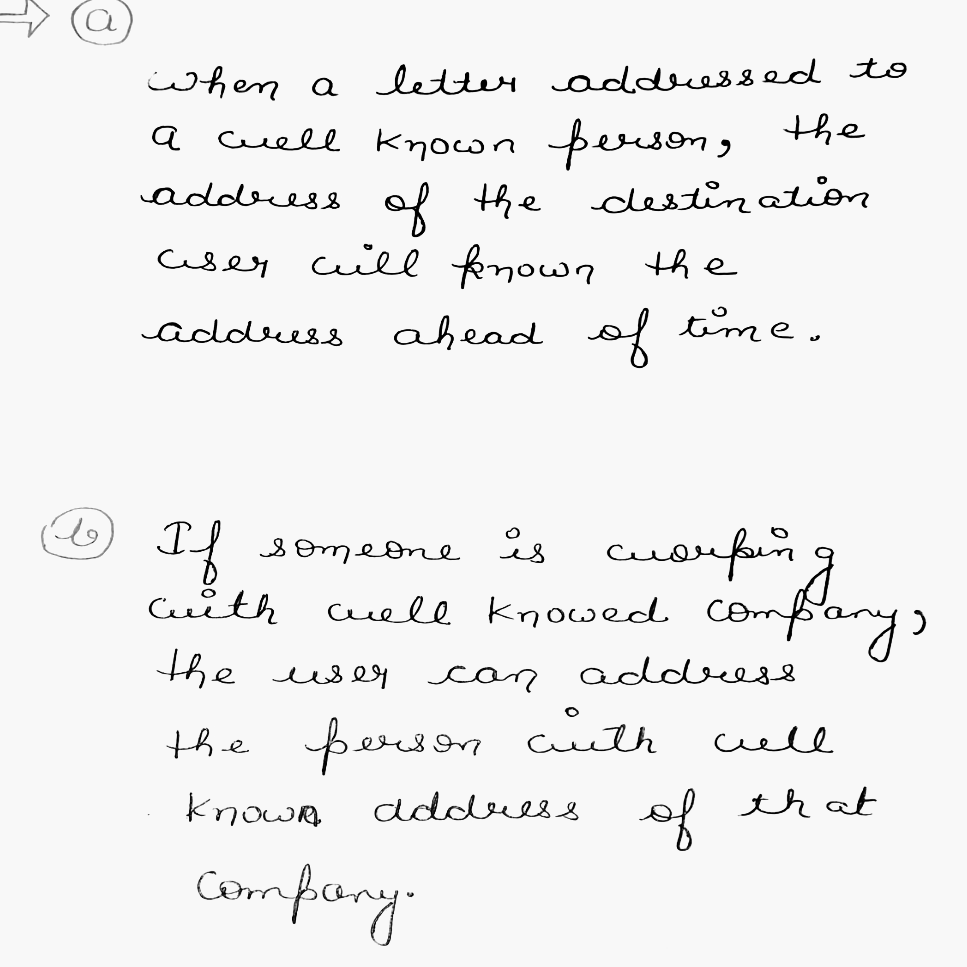 ⇒ a
when a letter addressed to
a well known person, the
address of the destination
user will known the
address ahead of time.
b If someone is working
with well knowed company,
the user can address
the person with well
known address of that
company.